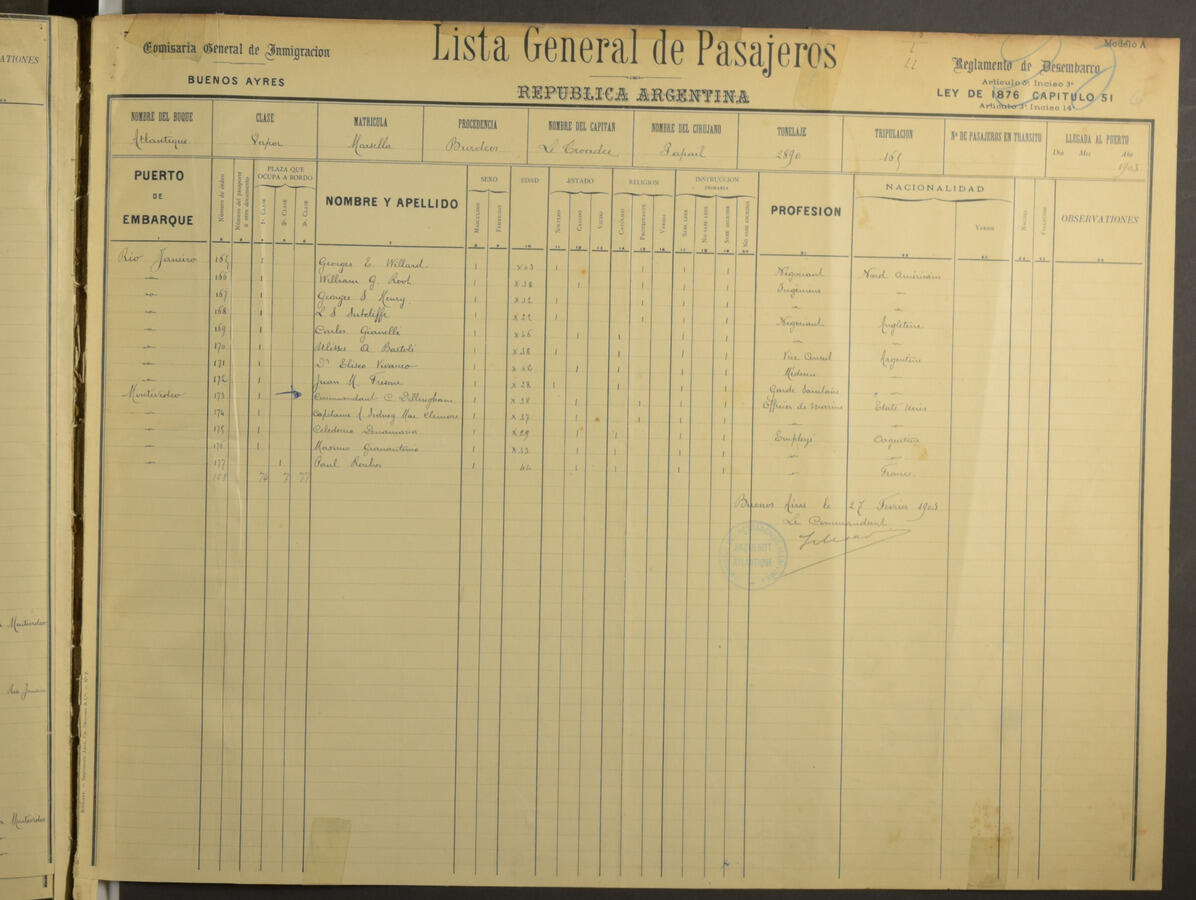 ATIONES
Comisaria General de Inmigracion
BUENOS AYRES
Lista General de Pasajeros
REPUBLICA ARGENTINA
Modelo A
Reglamento de Desembarco
Articulo 5º Inciso 3º
LEY DE 1876 CAPITULO 51
Articulo 3º Inciso 14º
NOMBRE DEL BUQUE CLASE MATRICULA PROCEDENCIA NOMBRE DEL CAPITAN NOMBRE DEL CIRUJANO TONELAJE TRIPULACION Nº DE PASAJEROS EN TRANSITO LLEGADA AL PUERTO
Dia Mes Año
Atlantique Vapor Marsella Burdeos Le Troadec 2890 165 1903
PUERTO DE EMBARQUE Número de órden Número del pasaporte ú otro documento PLAZA QUE OCUPA A BORDO 1ª CLASE 2ª CLASE 3ª CLASE NOMBRE Y APELLIDO SEXO MASCULINO FEMENINO EDAD ESTADO SOLTERO CASADO VIUDO RELIGION CATÓLICO PROTESTANTE VARIOS INSTRUCCION PRIMARIA SABE LEER NO SABE LEER SABE ESCRIBIR NO SABE ESCRIBIR PROFESION NACIONALIDAD Varios OBSERVATIONES
Rio Janeiro 165 1 Georges E. Willard 1 1 1 1 1 Négociant Nord Américain
" 166 1 William G. Root 1 x 38 1 1 1 1 Ingénieur "
" 167 1 Georges S. Henry 1 x 32 1 1 1 1 " "
" 168 1 L. S. Sutcliffe 1 x 22 1 1 1 1 Négociant Angleterre
" 169 1 Carlos Gianelli 1 x 46 1 1 1 1 " "
" 170 1 Ulisses A Bartoli 1 x 38 1 1 1 1 Vice Consul Argentine
" 171 1 Dr Eliseo Vivanco 1 1 1 1 1 Médecin "
" 172 1 Juan M. 1 x 28 1 1 1 1 Garde Sanitaire "
Montevideo 173 1 Commandant C Dillingham 1 x 38 1 1 1 1 Officier de marine Etats Unis
" 174 1 Capitaine 1 x 37 1 1 1 1 " "
" 175 1 Celedonio 1 x 29 1 1 1 1 Employé Argentine
" 176 1 Maximo 1 x 32 1 1 1 " "
" 177 1 Paul 1 44 1 1 1 1 " France
Buenos Aires le 27 Février 1903
Le Commandant
PAQUEBOT
ATLANTIQUE
Montevideo
Rio Janeiro
Montevideo